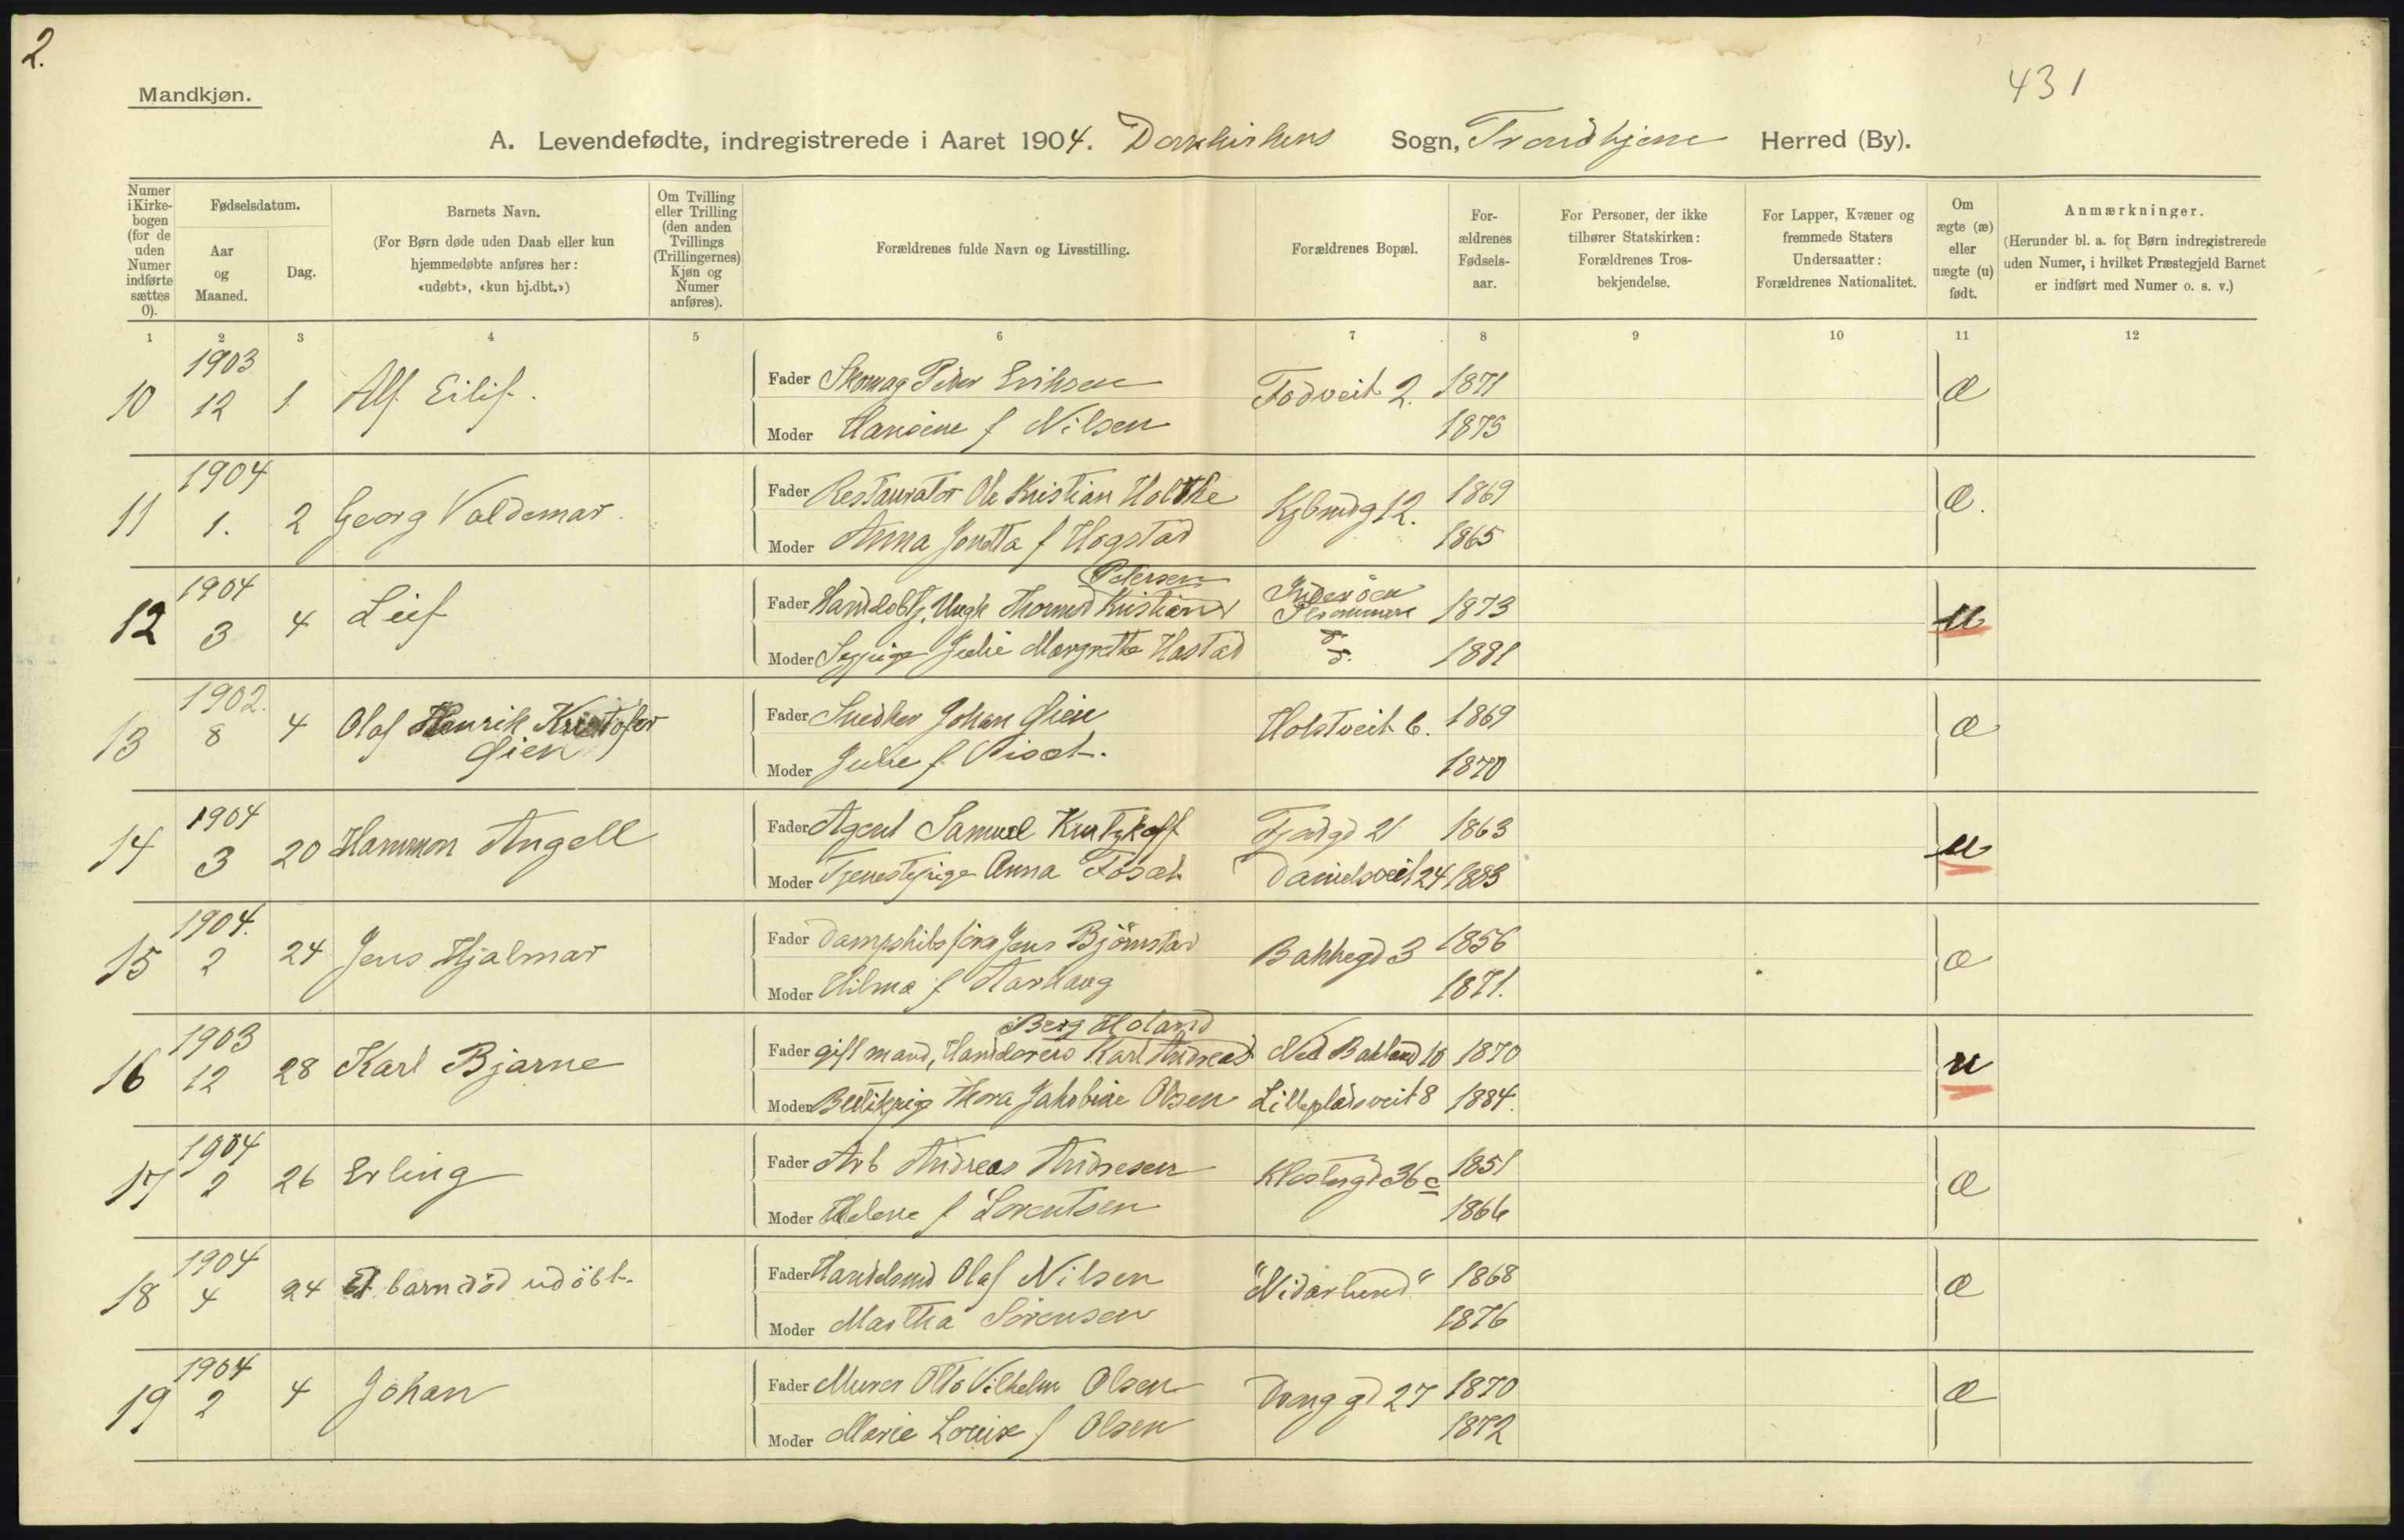 2.
431
Mandkjøn.
A. Levendefødte, indregistrerede i Aaret 1904. Domkirkens Sogn, Trondhjem Herred (By).
Numer i Kirkebogen (for de uden Numer indførte sættes 0).
Fødselsdatum.
Aar og Maaned.
Dag.
Barnets Navn.
(For Børn døde uden Daab eller kun hjemmedøbte anføres her: «udøbt», «kun hj.dbt.»)
Om Tvilling eller Trilling (den anden Tvillings (Trillingernes) Kjøn og Numer anføres).
Forældrenes fulde Navn og Livsstilling.
Forældrenes Bopæl.
Forældrenes Fødselsaar.
For Personer, der ikke tilhører Statskirken: Forældrenes Trosbekjendelse.
For Lapper, Kvæner og fremmede Staters Undersaatter: Forældrenes Nationalitet.
Om ægte (æ) eller uægte (u) født.
Anmærkninger.
(Herunder bl. a. for Børn indregistrerede uden Numer, i hvilket Præstegjeld Barnet er indført med Numer o. s. v.)
1 2 3 4 5 6 7 8 9 10 11 12
10 1903 12 1 Alf Eilif.
Fader Skomag Peder Eriksen Fodveit 2. 1871 æ
Moder Hansine f Nilsen 1875
11 1904 1. 2 Georg Valdemar.
Fader Restauratør Ole Kristian Holthe Kjbmdg 12. 1869 æ.
Moder Anna Jonetta f Hogstad 1865
12 1904 3 4 Leif
Petersen
Fader Handelsbtj. Ungk Thomas Kristian Inderöen 1873 u
Moder Sypige Julie Margrethe Hastad 1881
13 1902. 8 4 Olaf Henrik Kristofer Gien
Fader Snedker Johan Gien Holstveit 6. 1869 æ
Moder Julie f 1870
14 1904 3 20 Hammon Angell
Fader Agent Samuel Kutzkoff Fjordgd 21 1863 u
Moder Tjenestepige Anna Fosæt Danielsveit 24 1883
15 1904. 2 24 Jens Hjalmar
Fader Dampskibsförer Jens Björnstad Bakkegd 3 1856 æ
Moder Hilma f Aarhaug 1871.
16 1903 12 28 Karl Bjarne
Berg Holand
Fader gift mand, Handlereis Karl Andreas Ned Bakland 10 1870 u
Moder Butikpige Thora Jakobine Olsen Lillepladsveit 8 1884.
17 1904 2 26 Erling
Fader Arb Andreas Andresen Klostergd 36 c 1851 æ
Moder Helene f Lorentsen 1866
18 1904 4 24 Et barn död udöbt.
Fader Handelsmd Olaf Nilsen "Nidarlund" 1868 æ
Moder Martha Sörensen 1876
19 1904 2 4 Johan
Fader Murer Otto Vilhelm Olsen Vonggd 27 1870 æ
Moder Marie Louise f Olsen 1872